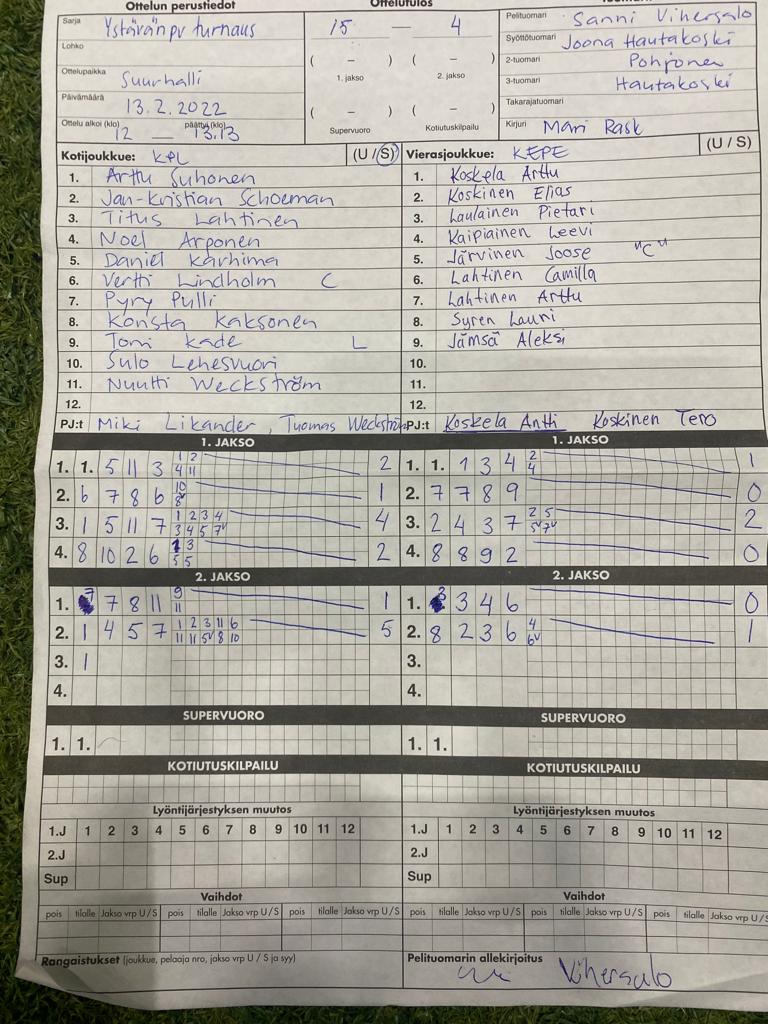 Ottelun perustiedot
Ottelutulos
Sarja Ystävänpv turnaus
Lohko
Ottelupaikka Suurhalli
Päivämäärä 13.2.2022
Ottelu alkoi (klo) 12 — päättyi (klo) 13.13
15 — 4
( – ) ( – )
1. jakso 2. jakso
( – ) ( – )
Supervuoro Kotiutuskilpailu
Pelituomari Sanni Vihersalo
Syöttötuomari Joona Hautakoski
2-tuomari Pohjonen
3-tuomari Hautakoski
Takarajatuomari
Kirjuri Mari Rask
Kotijoukkue: KPL (U / S)
1. Arttu Suhonen
2. Jan-Kristian Schoeman
3. Titus Lahtinen
4. Noel Arponen
5. Daniel Karhima
6. Vertti Lindholm C
7. Pyry Pulli
8. Konsta Kaksonen
9. Tomi Kade L
10. Sulo Lehesvuori
11. Nuutti Weckström
12.
PJ:t Miki Likander, Tuomas Weckström
Vierasjoukkue: KEPE (U / S)
1. Koskela Arttu
2. Koskinen Elias
3. Laulainen Pietari
4. Kaipiainen Leevi
5. Järvinen Joose "C"
6. Lahtinen Camilla
7. Lahtinen Arttu
8. Syren Lauri
9. Jämsä Aleksi
10.
11.
12.
PJ:t Koskela Antti Koskinen Tero
1. JAKSO
1. 1. 5 11 3 1 2 4 11 2
2. 6 7 8 6 10 8v 1
3. 1 5 11 7 1 2 3 4 3 4 5 7v 4
4. 8 10 2 6 1 3 5 5 2
1. JAKSO
1. 1. 1 3 4 2 4 1
2. 7 7 8 9 0
3. 2 4 3 7 2 5 5v 7v 2
4. 8 8 9 2 0
2. JAKSO
1. 7 7 8 11 9 11 1
2. 1 4 5 7 1 2 3 11 6 11 11 5v 8 10 5
3. 1
4.
2. JAKSO
1. 3 3 4 6 0
2. 8 2 3 6 4 6v 1
3.
4.
SUPERVUORO
1. 1.
SUPERVUORO
1. 1.
KOTIUTUSKILPAILU
KOTIUTUSKILPAILU
Lyöntijärjestyksen muutos
1.J 1 2 3 4 5 6 7 8 9 10 11 12
2.J
Sup
Lyöntijärjestyksen muutos
1.J 1 2 3 4 5 6 7 8 9 10 11 12
2.J
Sup
Vaihdot
pois tilalle Jakso vrp U/S pois tilalle Jakso vrp U/S pois tilalle Jakso vrp U/S
Vaihdot
pois tilalle Jakso vrp U/S pois tilalle Jakso vrp U/S pois tilalle Jakso vrp U/S
Rangaistukset (joukkue, pelaaja nro, jakso vrp U / S ja syy)
Pelituomarin allekirjoitus
Vihersalo